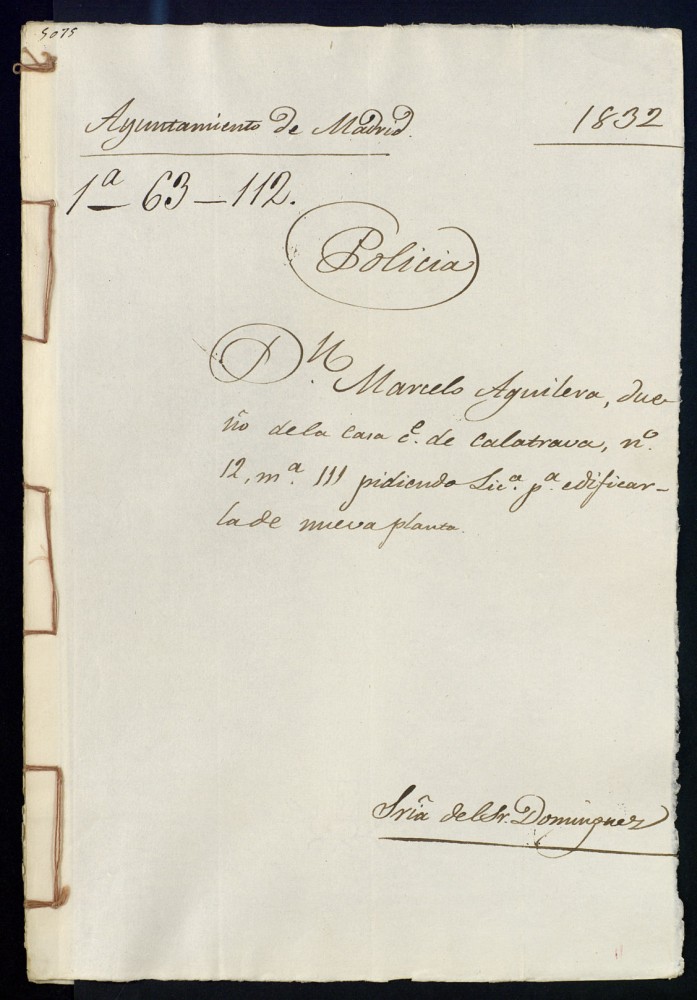 5075
Ayuntamiento de Madrid.
1832
1ª 63-112.
Policia
D.n Marcelo Aguilera, due
ño dela casa c.e de Calatrava, n.o
12, m.a 111 pidiendo Lic.a p.a edificar-
la de nueva planta.
Sría del Sr. Dominguez